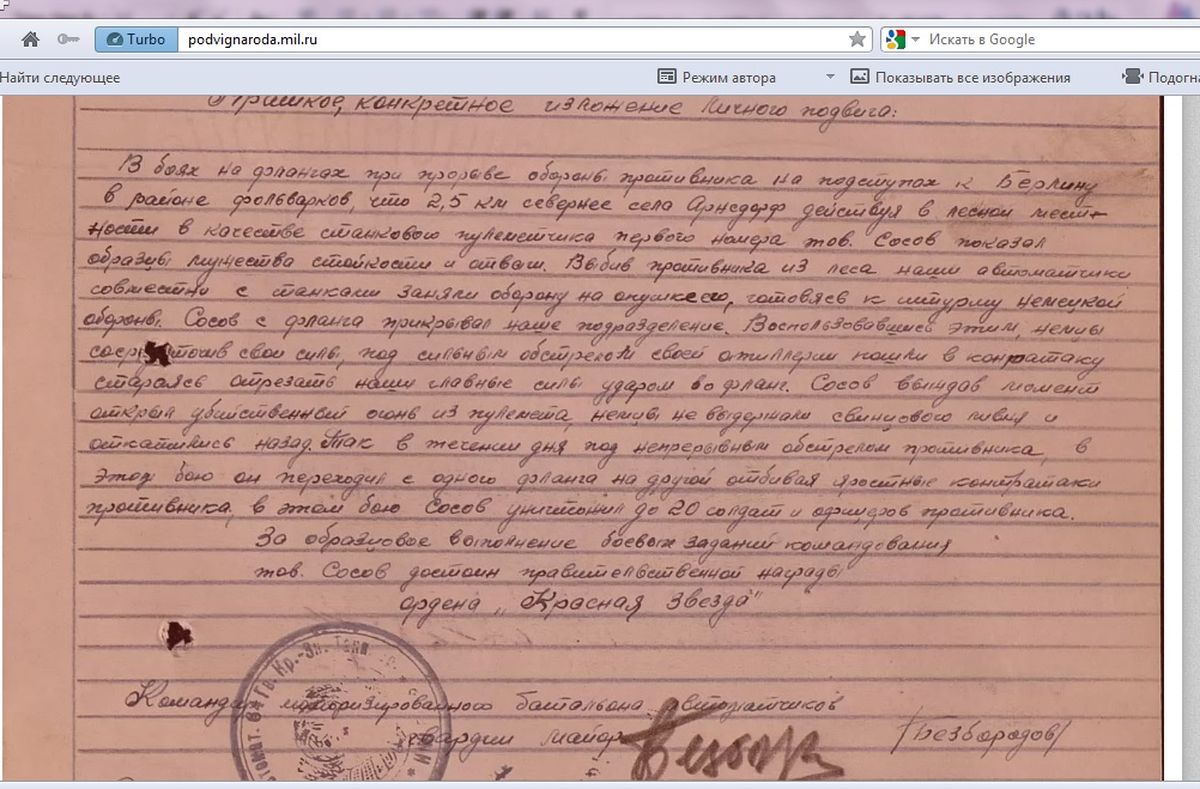 Turbo podvignaroda.mil.ru Искать в Google
Найти следующее Режим автора Показывать все изображения Подогна
Краткое, конкретное изложение личного подвига:
В боях на флангах при прорыве обороны противника на подступах к Берлину
в районе фольварков, что 2,5 км севернее села Арнсдорф действуя в лесной мест-
ности в качестве станкового пулеметчика первого номера тов. Сосов показал
образцы мужества стойкости и отваги. Выбив противника из леса наши автоматчики
совместно с танками заняли оборону на опушке его, готовясь к штурму немецкой
обороны. Сосов с фланга прикрывал наше подразделение. Воспользовавшись этим, немцы
свои силы, под сильным обстрелом своей артиллерии пошли в контратаку
стараясь отрезать наши главные силы ударом во фланг. Сосов выждав момент
открыл убийственный огонь из пулемета, немцы не выдержали свинцового ливня и
откатились назад. Так в течении дня под непрерывным обстрелом противника, в
этом бою он переходил с одного фланга на другой отбивая яростные контратаки
противника, в этом бою Сосов уничтожил до 20 солдат и офицеров противника.
За образцовое выполнение боевых заданий командования
тов. Сосов достоин правительственной награды
ордена „Красная Звезда"
Командир моторизированного батальона автоматчиков
гвардии майор /Безбородов/